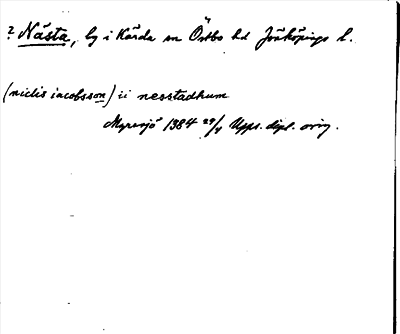 ? Nästa, by i Kärda sn Östbo hd Jönköpings l.
(niclis iacobsson) ii nesstadhum
Myresjö 1384 29/4 Upps. dipl. orig.